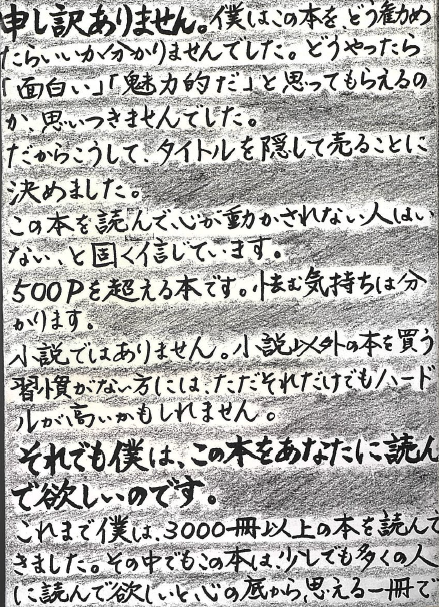 申し訳ありません。僕はこの本を、どう勧め
たらいいか分かりませんでした。どうやったら
「面白い」「魅力的だ」と思ってもらえるの
か、思いつきませんでした。
だからこうして、タイトルを隠して売ることに
決めました。
この本を読んで心が動かされない人はい
ない、と固く信じています。
500Pを超える本です。怯む気持ちは分
かります。
小説ではありません。小説以外の本を買う
習慣がない方には、ただそれだけでもハード
ルが高いかもしれません。
それでも僕は、この本をあなたに読ん
で欲しいのです。
これまで僕は、3000冊以上の本を読んで
きました。その中でもこの本は、少しでも多くの人
に読んで欲しいと、心の底から思える一冊で